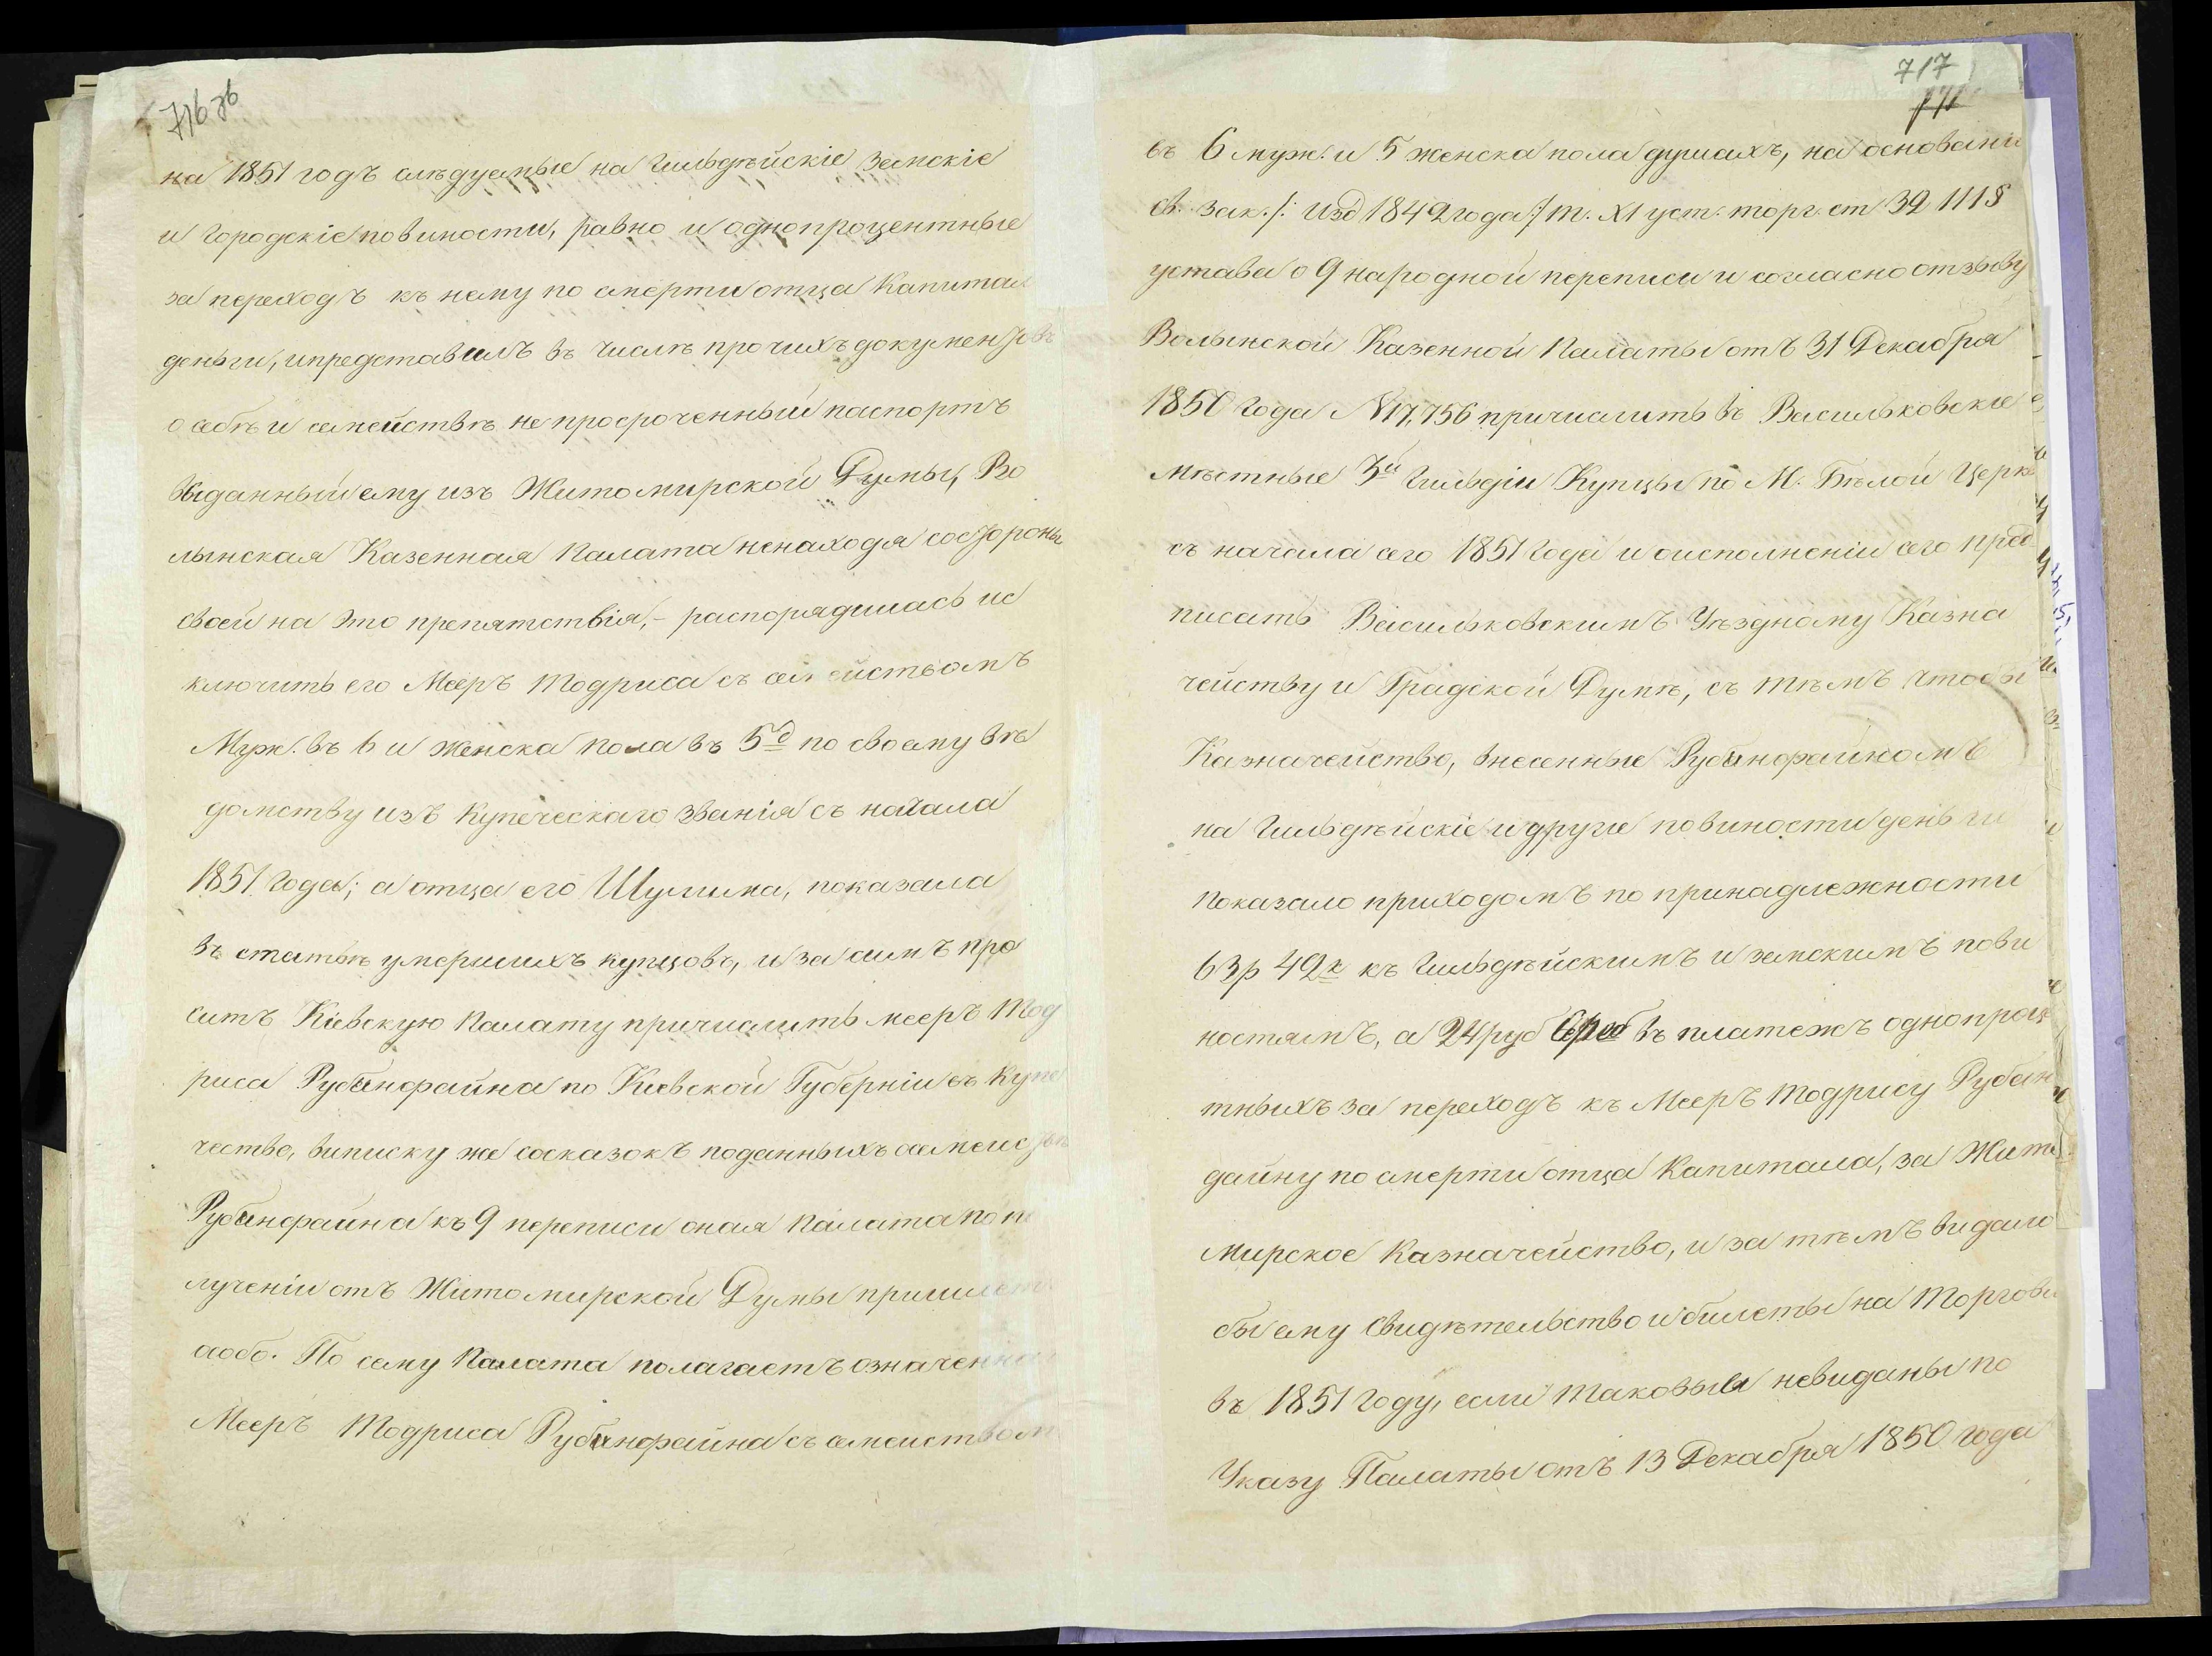 716 об
на 1851 годъ слѣдуемые на гильдѣйскіе земскіе
и городскіе повиности, равно и однопроцентные
за переходъ къ нему по смерти отца капитал
деньги, и представилъ въ числѣ прочихъ документовъ
о себѣ и семействѣ не просроченный паспортъ
выданный ему изъ Житомирской Думы, Во
лынская Казенная Палата ненаходя состороны
своей на это препятствія,- распорядилась ис
ключить его Мееръ Тодриса съ семействомъ
Муж. въ 6 и женска пола въ 5д по своему вѣ
домству изъ купеческаго званія съ начала
1851. года; а отца его Шулима, показала
въ статьѣ умершихъ купцовъ, и за симъ про
ситъ Кіевскую Палату причислить меерѣ Тод
риса Рубинфайна по Кіевской Губерніи въ купе
чество, виписку же сосказокъ поданныхъ семейств
Рубинфайна къ 9 переписи оная Палата по по
лученіи отъ Житомирской Думы пришлетъ
особо. По сему Палата полагаетъ означенна
Меерѣ Тодриса Рубинфайна съ семействомъ
717
въ 6 муж. и 5 женска пола душахъ, на основаніи
св. зак. /: изд 1842 года / т. XI уст. торг. ст 39 111 §
устава о 9 народной переписи и согласно отзыву
Волынской Казенной Палаты отъ 31 Декабря
1850 года № 17,756 причислить въ Васильковскіе
мѣстные 3й гильдіи Купцы по М. Бѣлой Церк
съ начала сего 1851 года и оисполненіи сего пред
писать Васильковскимъ Уѣздному Казна
чейству и Градской Думѣ, съ тѣмъ чтобы
Казначейство, внесенные Рубинфайномъ
на гильдѣйскіе и другіе повиности деньги
показало приходомъ по принадлежности
63р 42к къ гильдѣйскимъ и земскимъ пови
ностямъ, а 24 руб сереб въ платежъ однопроце
тныхъ за переходъ къ Меерѣ Тодрису Рубин
файну по смерти отца капитала, за Жито
мирское казначейство, и за тѣмъ видало
бы ему свидѣтельство и билеты на торгов
въ 1851 году, если таковыя невиданы по
Указу Палаты отъ 13 Декабря 1850 года